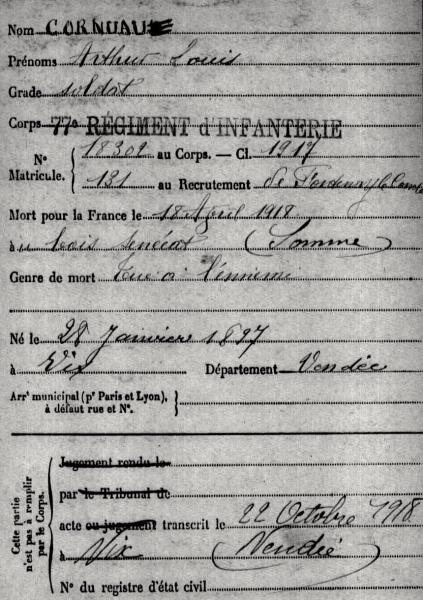 Nom CORNUAU
Prénoms Arthur Louis
Grade soldat
Corps 77e RÉGIMENT d'INFANTERIE
N° Matricule. { 18302 au Corps. — Cl. 1917
131 au Recrutement de Fontenay le Comte
Mort pour la France le 18 Avril 1918
à u bois Sénécat (Somme)
Genre de mort Tué à l'ennemi
Né le 28 Janvier 1897
à Vix Département Vendée
Arrt municipal (pr Paris et Lyon),
à défaut rue et N°.
Cette partie n'est pas à remplir par le Corps.
Jugement rendu le
par le Tribunal de
acte ou jugement transcrit le 22 Octobre 1918
à Vix (Vendée)
N° du registre d'état civil